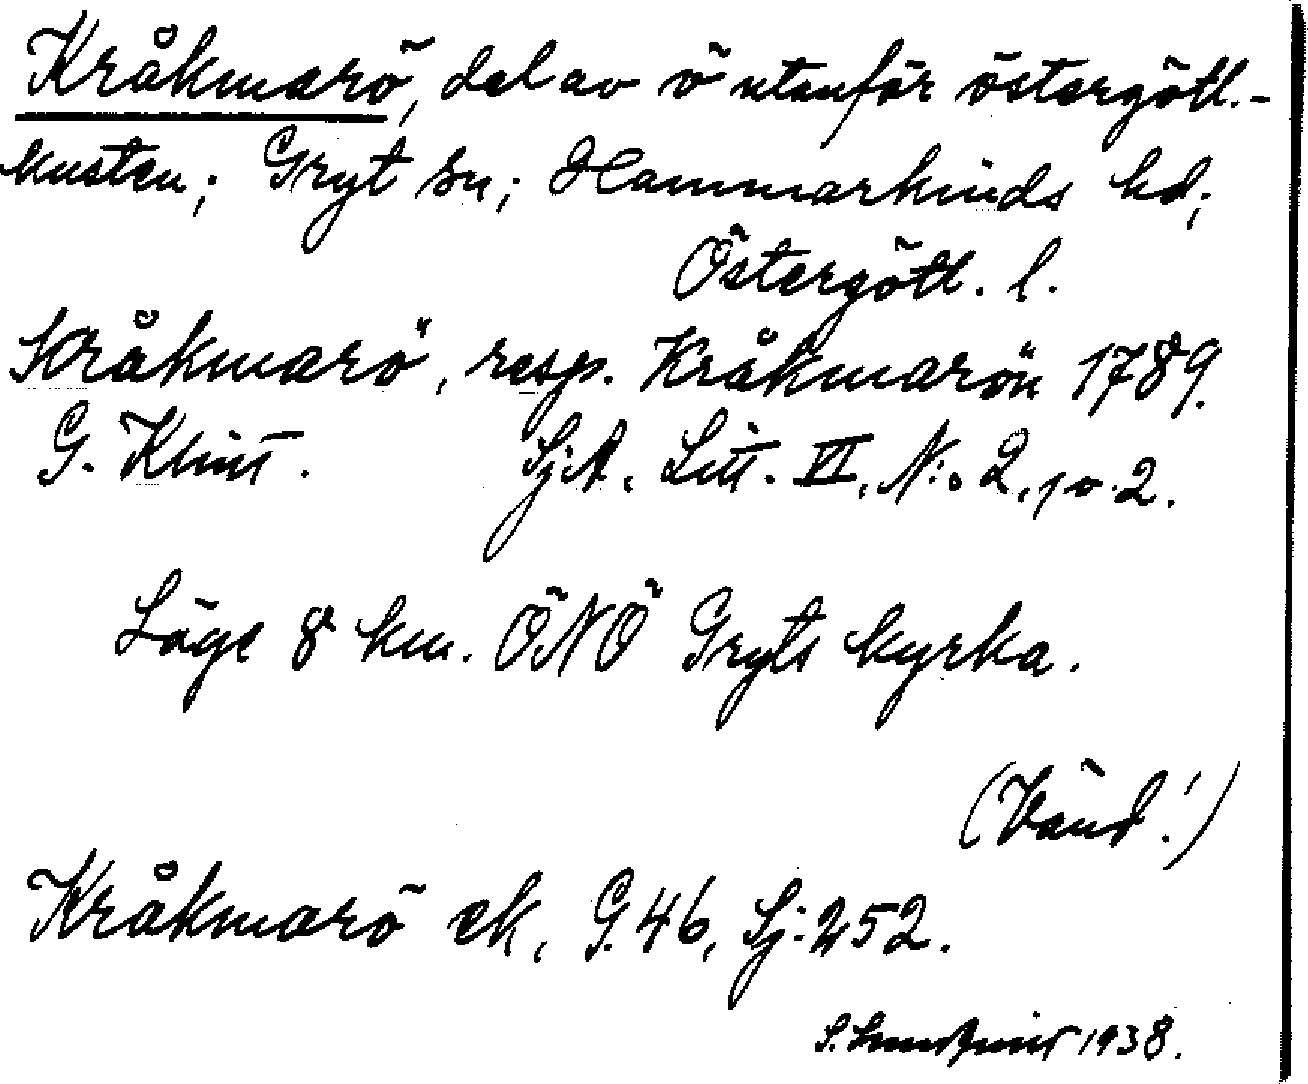 Kråkmarö, del av ö utanför östergötl.-
kusten; Gryt sn; Hammarkinds hd;
Östergötl. l.
Kråkmarö, resp. Kråkmarön 1789.
G. Klint. Sj:A. Litt. VI, N:o 2, p. 2.
Läge 8 km. ÖNÖ Gryts kyrka.
(Vänd!)
Kråkmarö ek, G. 46, Sj: 252.
S. 1938.